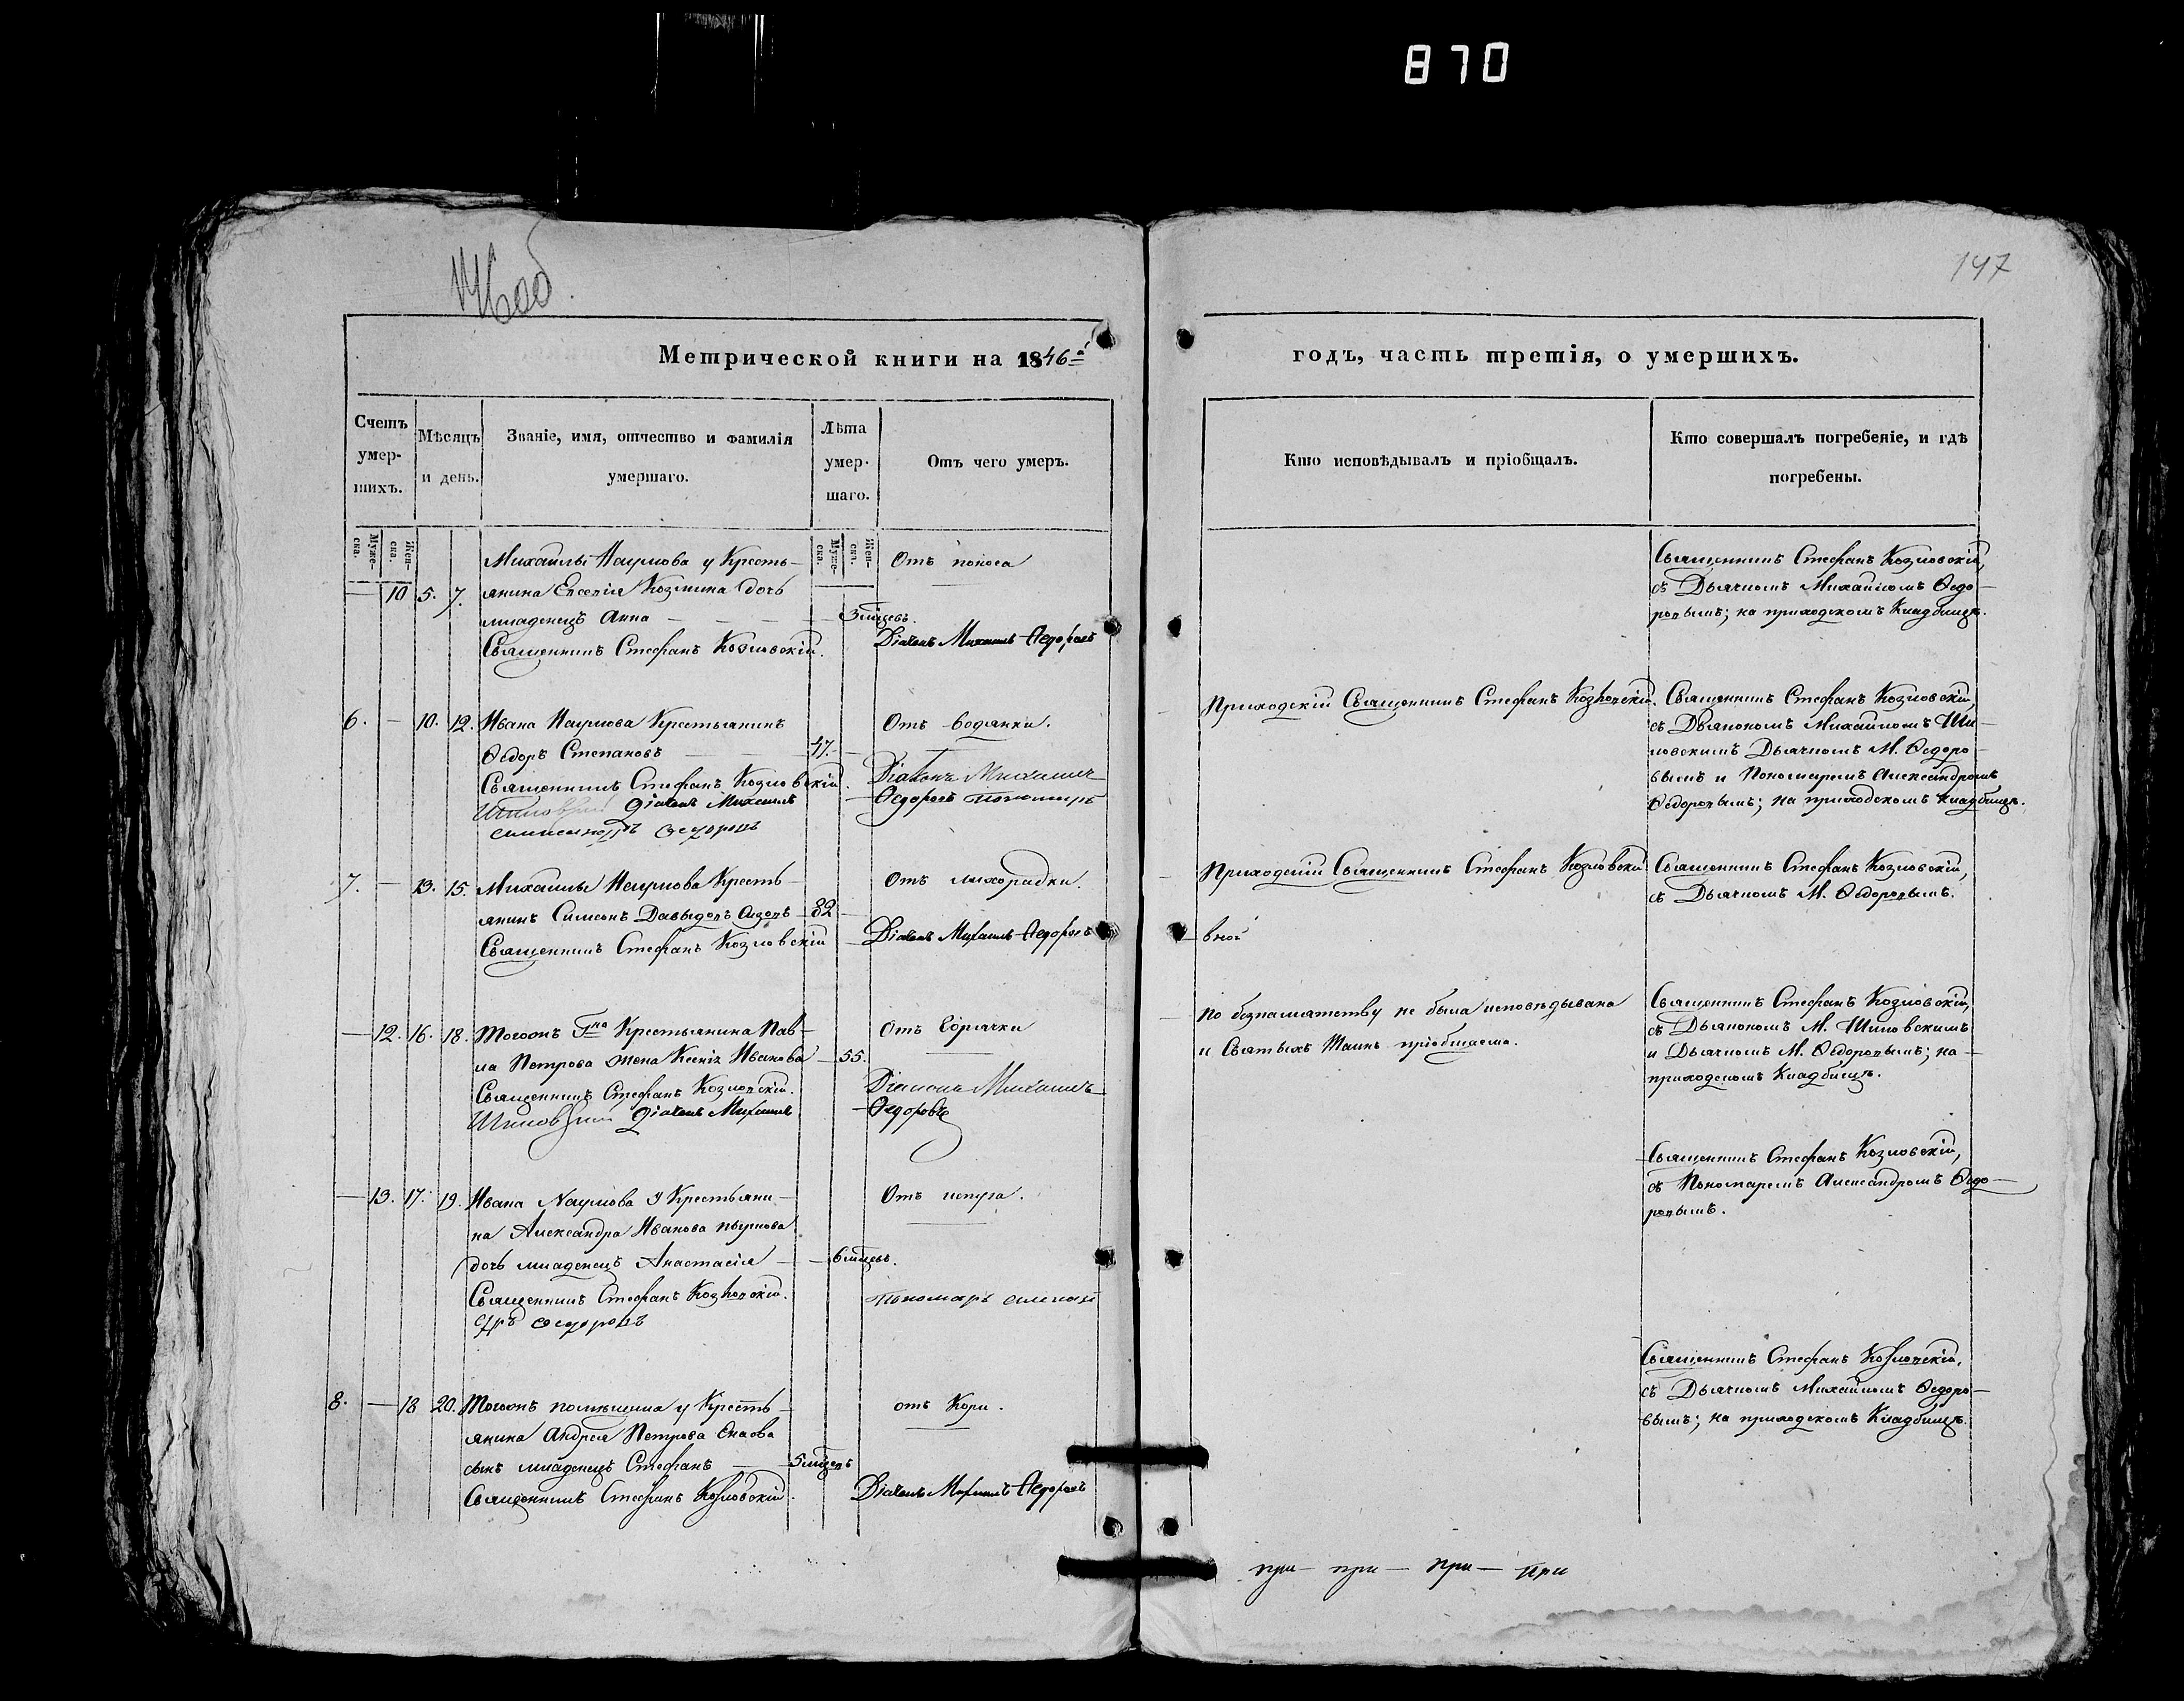 870
147
Метрической книги на 1846й
годъ, часть третія, о умершихъ.
Счетъ умер-шихъ.
Мѣсяцъ и день.
Званіе, имя, отчество и фамилія умершаго.
Лѣта умер-шаго.
Отъ чего умеръ.
Кто исповѣдывалъ и пріобщалъ.
Кто совершалъ погребеніе, и гдѣ погребены.
Муже-ска.
Жен-ска.
Муже-ска.
Жен-ска.
Михаилы Наумова у Кресть-
— 10 5. 7. янина Евсевія Козмина дочь
младенецъ Анна — 3 мцевъ.
Священникъ Стефанъ Козловскій.
Отъ поноса
Діачекъ Михаилъ Федоровъ
Священникъ Стефанъ Козловскій,
съ Дьячкомъ Михайломъ Ѳедо-
ровымъ; на приходскомъ Кладбищѣ.
6. — 10. 12. Ивана Наумова Крестьянинъ
Ѳедоръ Степановъ — 47. —
Священникъ Стефанъ Козловскій.
Шиловскій Діаконъ Михаилъ
Александръ Федоровъ
Отъ водянки.
Діаконъ Михаилъ
Ѳедоровъ Пономарь
Приходскій Священникъ Стефанъ Козловскій.
Священникъ Стефанъ Козловскій,
съ Дьякономъ Михайломъ Ши-
ловскимъ Дьячкомъ М. Ѳедоро-
вымъ и Пономаремъ Александромъ
Ѳедоровымъ; на приходскомъ кладбищѣ.
7. — 13. 15. Михаилы Наумова Кресть-
янинъ Симеонъ Давыдовъ — 82 —
Священникъ Стефанъ Козловскій
Отъ лихорадки.
Діачекъ Михаилъ Федоровъ
Приходскій Священникъ Стефанъ Козловскій
Священникъ Стефанъ Козловскій,
съ Дьячкомъ М. Ѳедоровымъ.
— 12. 16. 18. Тогожъ Гна Крестьянина Пав-
ла Петрова жена Ксенія Иванова — 55.
Священникъ Стефанъ Козловскій.
Шиловскій Діачекъ Михаилъ
Отъ Горячки
Діаконъ Михаилъ
Ѳедоровъ
По безпамятству не была исповѣдывана
и Святыхъ Таинъ пріобщаема.
Священникъ Стефанъ Козловскій,
съ Дьякономъ М. Шиловскимъ
и Дьячкомъ М. Ѳедоровымъ; на
приходскомъ Кладбищѣ.
— 13. 17. 19. Ивана Наумова у Крестьяни-
на Александра Иванова
дочь младенецъ Анастасія — 6 мцевъ.
Священникъ Стефанъ Козловскій.
дръ Ѳедоровъ
Отъ испуга.
Пономарь Алексан
Священникъ Стефанъ Козловскій,
съ Пономаремъ Александромъ Ѳедо-
ровымъ.
8. — 18 20. Тогожъ помѣщика у Кресть-
янина Андрея Петрова
сынъ младенецъ Стефанъ — 5 мцевъ
Священникъ Стефанъ Козловскій.
отъ Кори.
Діачекъ Михаилъ Федоровъ
Священникъ Стефанъ Козловскій,
съ Дьячкомъ Михайломъ Ѳедоро-
вымъ; на приходскомъ Кладбищѣ.
при — при — при — при